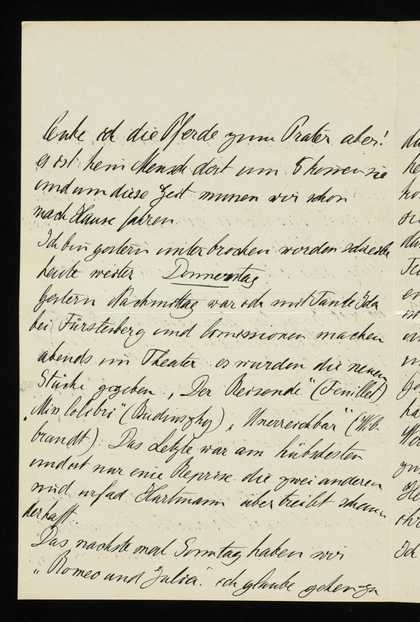 lenke ich die Pferde zum Prater aber!
es ist kein Mensch dort um 5 kommen sie
und um diese Zeit müssen wir schon
nach Hause fahren
Ich bin gestern unterbrochen worden schreibe
heute weiter Donnerstag
Gestern Nachmittag war ich mit Tante Ida
bei Fürstenberg und Comissionen machen
abends im Theater es wurden die neuen
Stücke gegeben „Der Reisende" (Feuillet)
„Miss Colibri" ( ) „Unerreichbar" (Wil
brandt). Das Letzte war am hübschesten
und ist nur eine Reprise die zwei anderen
sind Hartmann übertreibt schauer
derhaft.
Das nächste mal Sonntag haben wir
„Romeo und Julia." ich glaube gehen zu